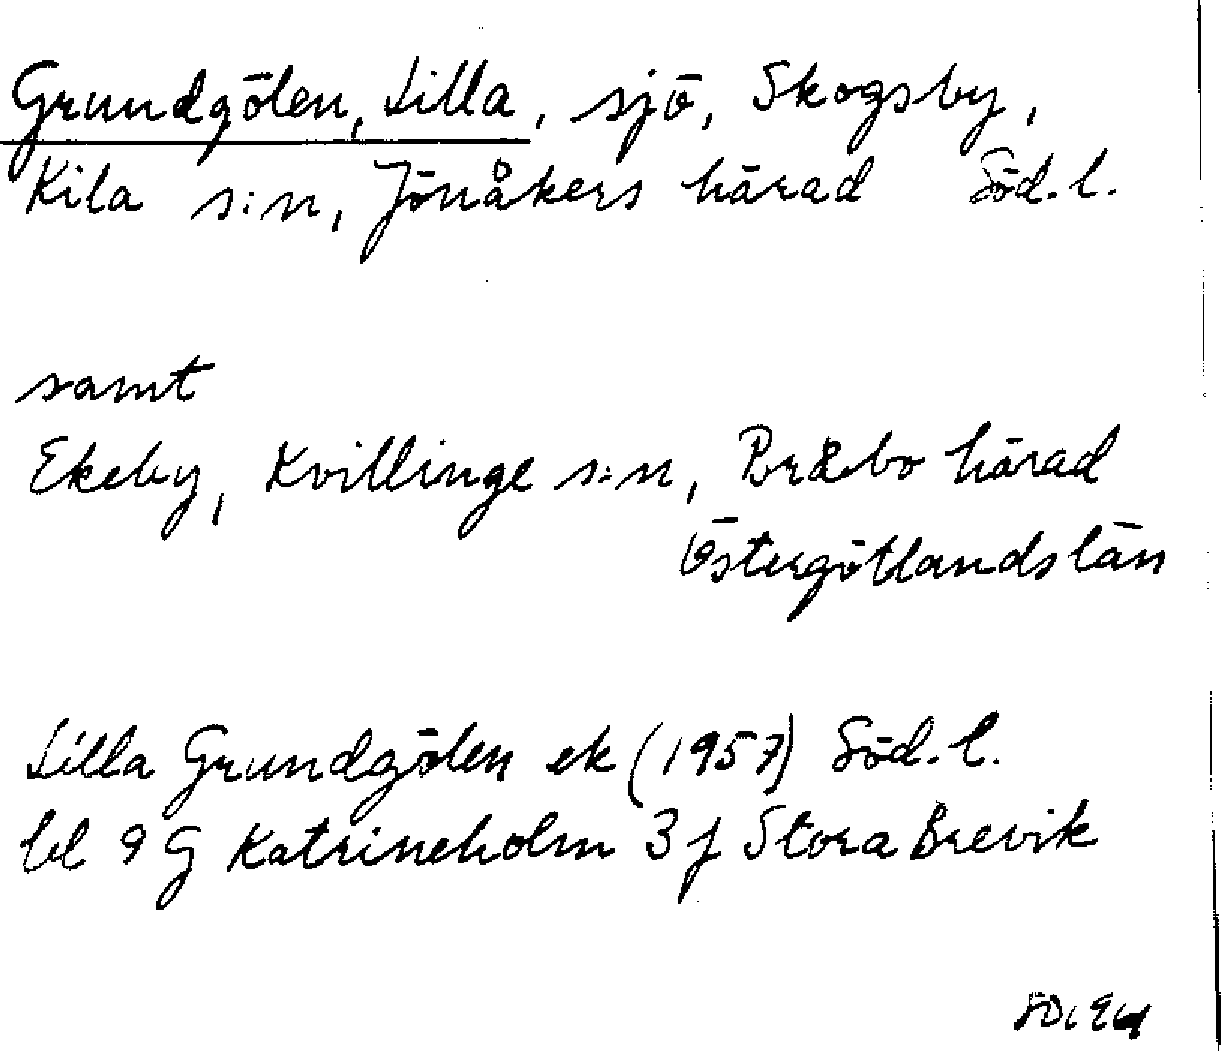 Grundgölen, Lilla, sjö, Skogsby,
Kila s:n, Jönåkers härad Söd. l.
samt
Ekeby, Kvillinge s:n, Bråbo härad
Östergötlands län
Lilla Grundgölen ek (1957) Söd. l.
bl 9 G Katrineholm 3 j Stora Brevik